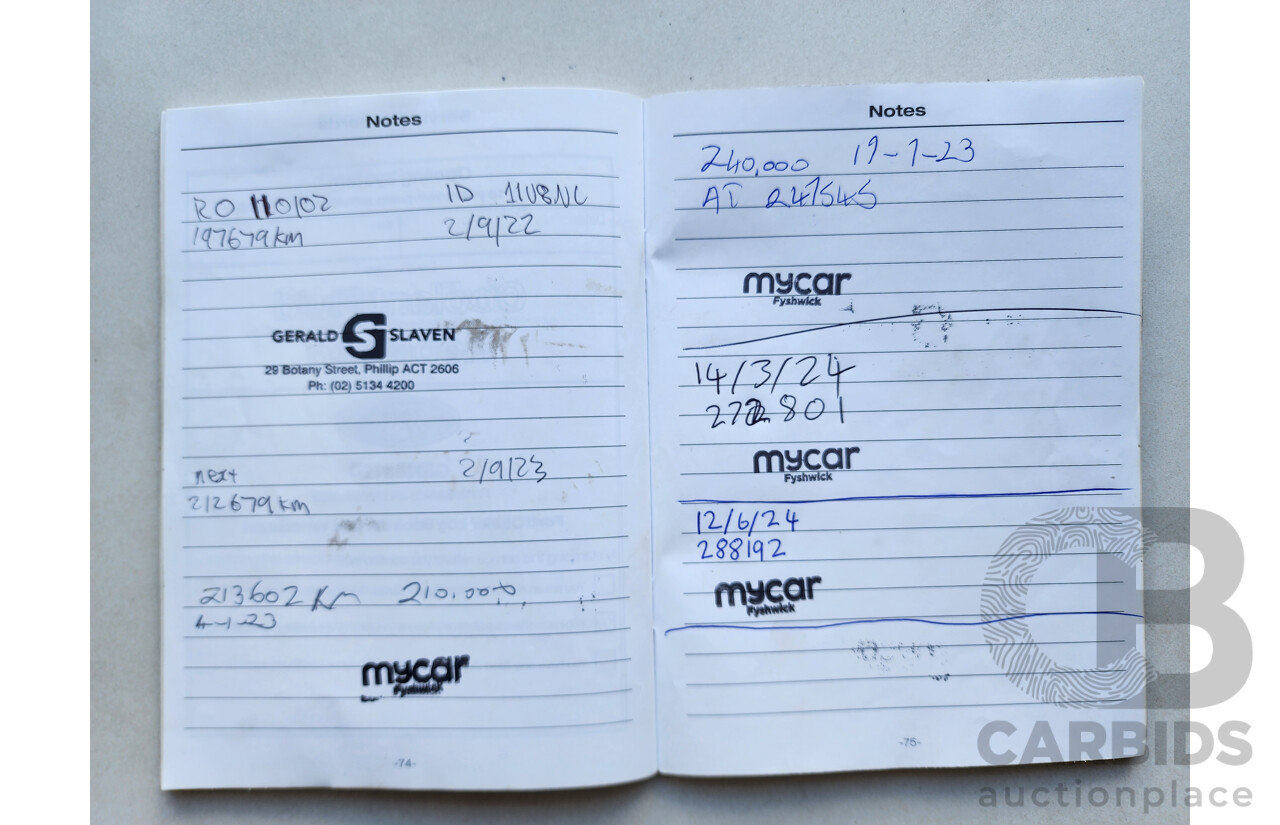 Notes
RO 110102 ID 11U8NC
197679km 2/9/22
GERALD SLAVEN
29 Botany Street, Phillip ACT 2606
Ph: (02) 5134 4200
next 2/9/23
212679km
213602 Km 210.000
4-1-23
mycar
Fyshwick
-74-
Notes
240,000 19-7-23
AT 247545
mycar
Fyshwick
14/3/24
272801
mycar
Fyshwick
12/6/24
288192
mycar
Fyshwick
-75-
CB
CARBIDS
auctionplace